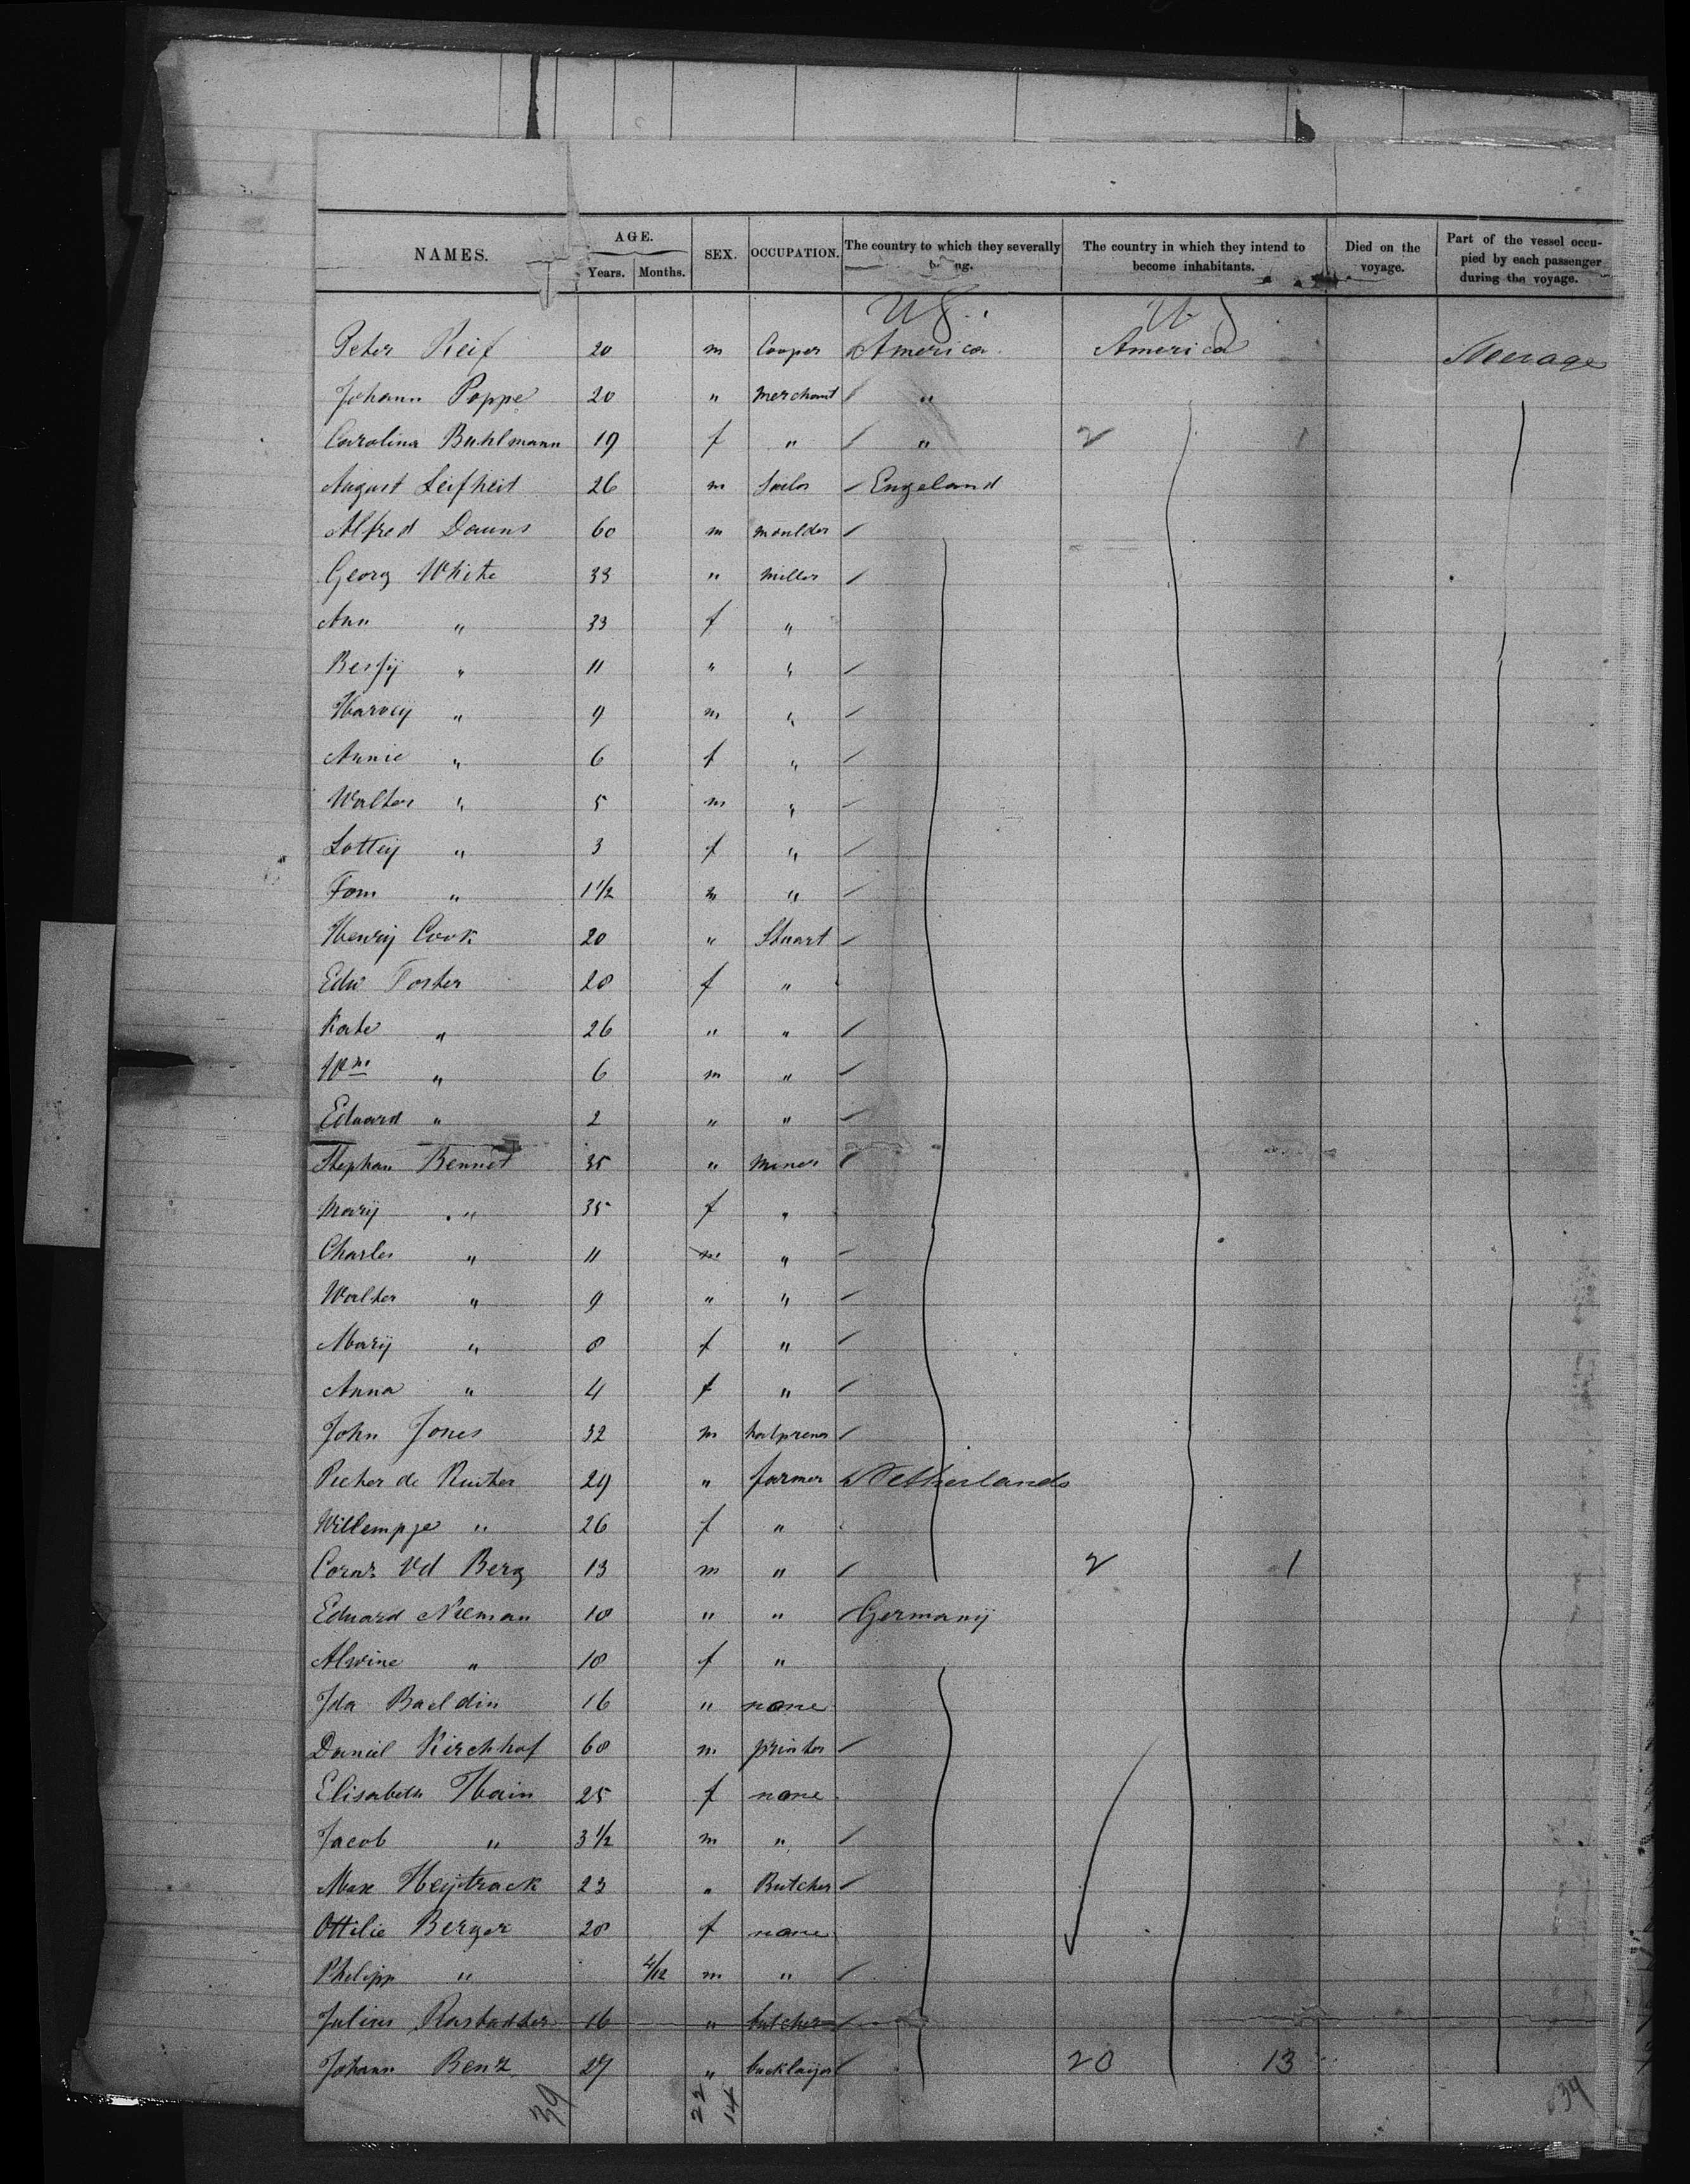 NAMES. AGE. Years. Months. SEX. OCCUPATION. The country to which they severally belong. The country in which they intend to become inhabitants. Died on the voyage. Part of the vessel occupied by each passenger during the voyage.
U S. U S
Peter Reif 20 m Cooper America America Steerage
Johann Poppe 20 " merchant "
Carolina Buhlmann 19 f " " 2 1
August Leifheit 26 m Engeland
Alfred Dauns 60 m moulder
Georg White 33 " miller
Ann " 33 f "
Bessy " 11 " "
Harvey " 9 m "
Annie " 6 f "
Walter " 5 m "
Lottey " 3 f "
Tom " 1 1/2 m "
Henry Cook 20 " Stuart
Edw Forster 28 f "
Kate " 26 " "
Wm " 6 m "
Eduard " 2 " "
Stephan Bennet 35 " miner
Mary " 35 f "
Charles " 11 m "
Walter " 9 " "
Mary " 8 f "
Anna " 4 f "
John Jones 32 m
Pieter de Ruiter 29 " farmer Netherlands
Willempje " 26 f "
Corns. Vd Berg 13 m " 2 1
Eduard Nieman 18 " " Germany
Alwine " 18 f "
Ida Baeldin 16 " none
Daniel Kirchhof 68 m printer
Elisabeth Thain 25 f none
Jacob " 3 1/2 m "
Max Heytrack 23 " Butcher
Ottilie Berger 28 f none
Philipp " 4/12 m "
Julius 16 " butcher
Johann Benz 27 " bucklayer 20 13
39 22 14 34